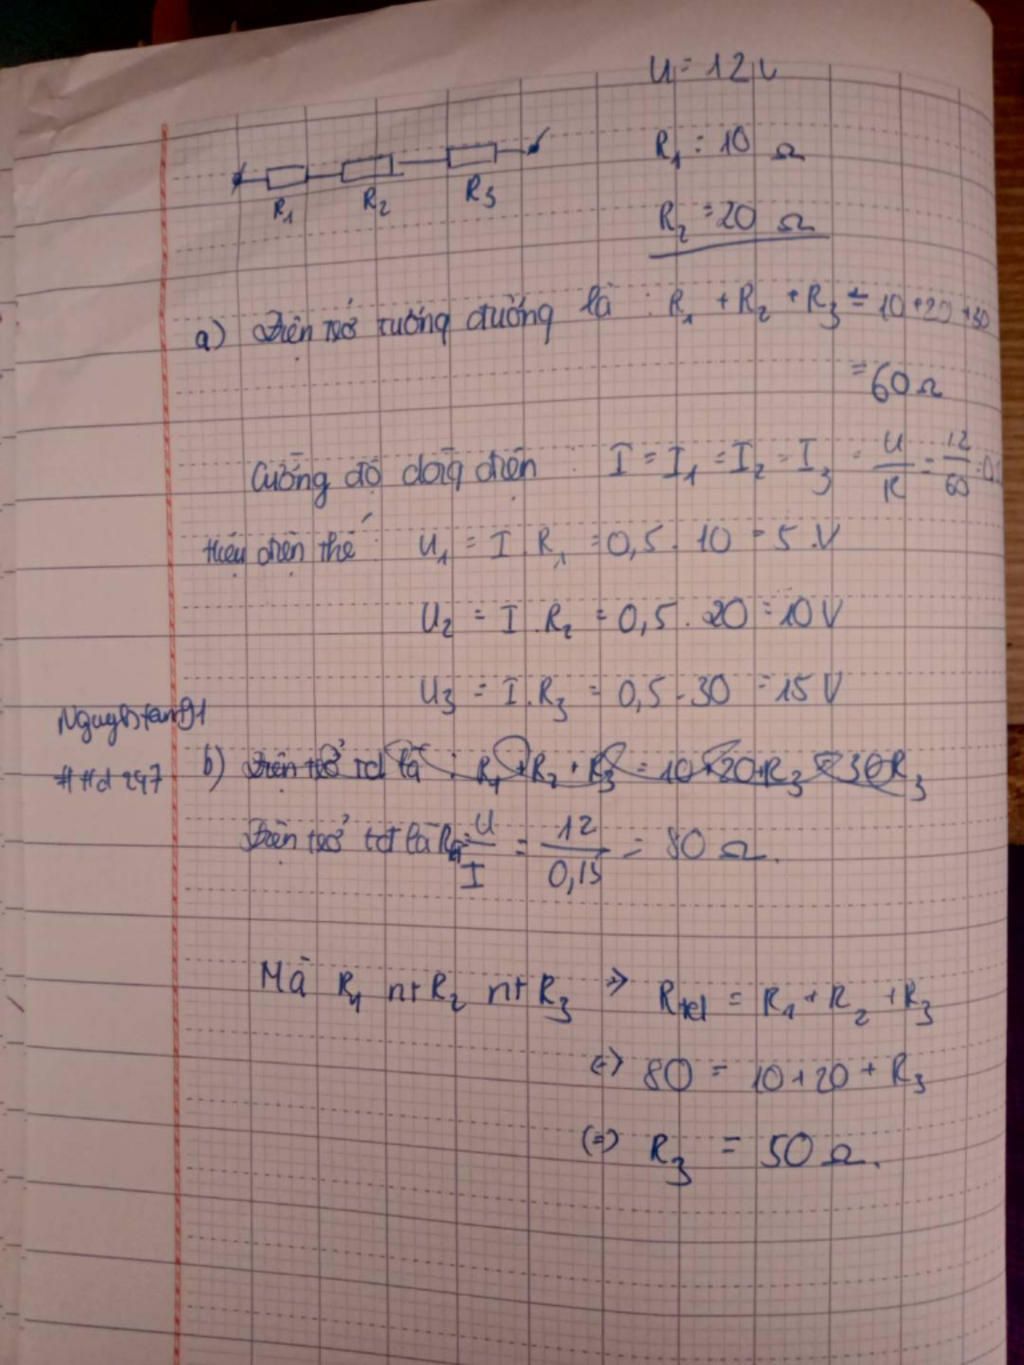 U = 12V
R1 : 10 Ω
R2 = 20 Ω
R1 R2 R3
a) Điện trở tương đương là : R1 + R2 + R3 = 10+20+30
= 60 Ω
Cường độ dòng điện : I = I1 = I2 = I3 = U/R = 12/60 =
Hiệu điện thế : U1 = I R1 = 0,5 . 10 = 5 V
U2 = I . R2 = 0,5 . 20 = 10 V
U3 = I . R3 = 0,5 . 30 = 15 V
b) Điện trở tđ là : R1 + R2 + R3 = 10+20+R3 = 30R3
##d 247
Điện trở tđ là R = U/I = 12/0,15 = 80 Ω.
Mà R1 nt R2 nt R3 => Rtđ = R1 + R2 + R3
<=> 80 = 10+20 + R3
(=) R3 = 50 Ω.